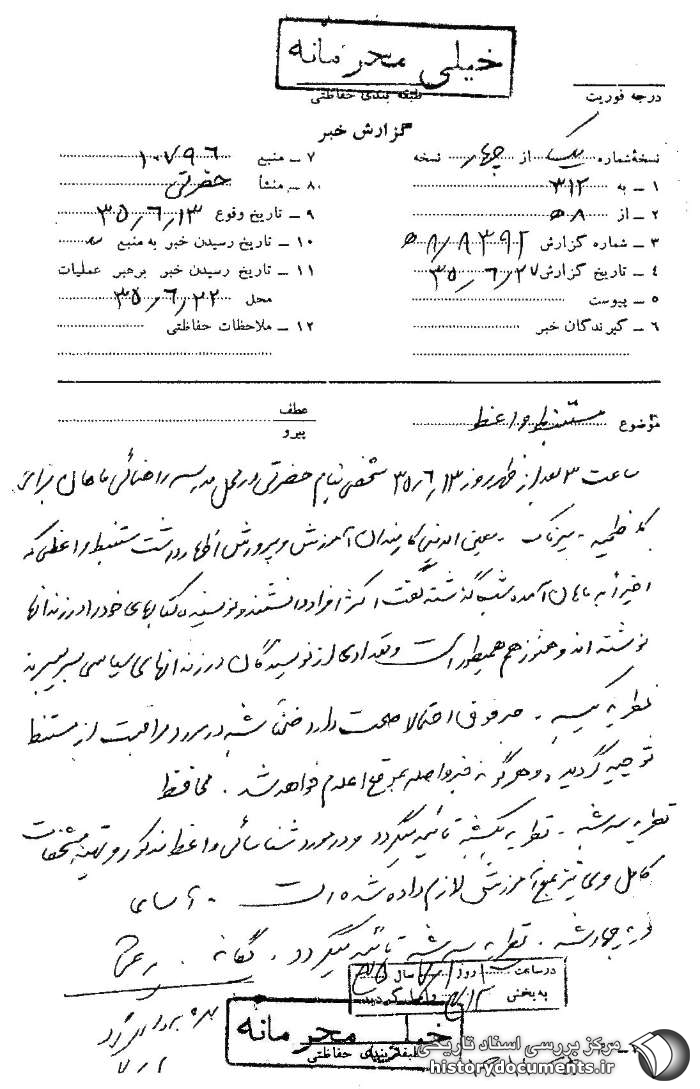 خیلی محرمانه
طبقه بندی حفاظتی
درجه فوریت
گزارش خبر
نسخهٔ شماره یک از چهار نسخه
۱ ـ به ۳۱۲
۲ ـ از ۵ﻫ۸
۳ ـ شماره گزارش ۸۳۹۲/۵ﻫ۸
۴ ـ تاریخ گزارش ۳۵/۶/۲۷
۵ ـ پیوست
۶ ـ گیرندگان خبر
۷ ـ منبع ۱۰۷۹۶
۸ ـ منشأ حضرتی
۹ ـ تاریخ وقوع ۳۵/۶/۱۳
۱۰ ـ تاریخ رسیدن خبر به منبع
۱۱ ـ تاریخ رسیدن خبر برهبر عملیات
محل ۳۵/۶/۲۲
۱۲ ـ ملاحظات حفاظتی
موضوع مستنبط واعظ
عطف
پیرو
ساعت ۳ بعد از ظهر روز ۳۵/۶/۱۳ شخصی بنام حضرتی در محل مدرسه راهنمائی ماهان برای
کاظمیه ـ ـ معین الدینی کارمندان آموزش و پرورش اظهار داشت مستنبط واعظی که
اخیراً به ماهان آمده شب گذشته گفت اکثر افراد دانشمند و نویسنده کتابهای خود را در زندانها
نوشته اند و هنوز هم همینطور است و تعدادی از نویسندگان در زندانهای سیاسی بسر میبرند
نظریه یکشنبه ـ خبر فوق احتمالا صحت دارد ضمناً شنبه در مورد مراقبت از مستنبط
توجیه گردیده و هرگونه خبر واصله بموقع اعلام خواهد شد . محافظ
نظریه سه شنبه ـ نظریه یکشنبه تأئید میگردد و در مورد شناسائی واعظ مذکور و تهیه مشخصات
کامل وی نیز بمنبع آموزش لازم داده شده است .
نظریه چهارشنبه . نظریه سه شنبه تأئید میگردد . یگانه .
در ساعت روز سال ۳۵
به بخش ۳۱۲ واصل گردید
خیلی محرمانه
طبقه بندی حفاظتی
مرکز بررسی اسناد تاریخی
historydocuments.ir